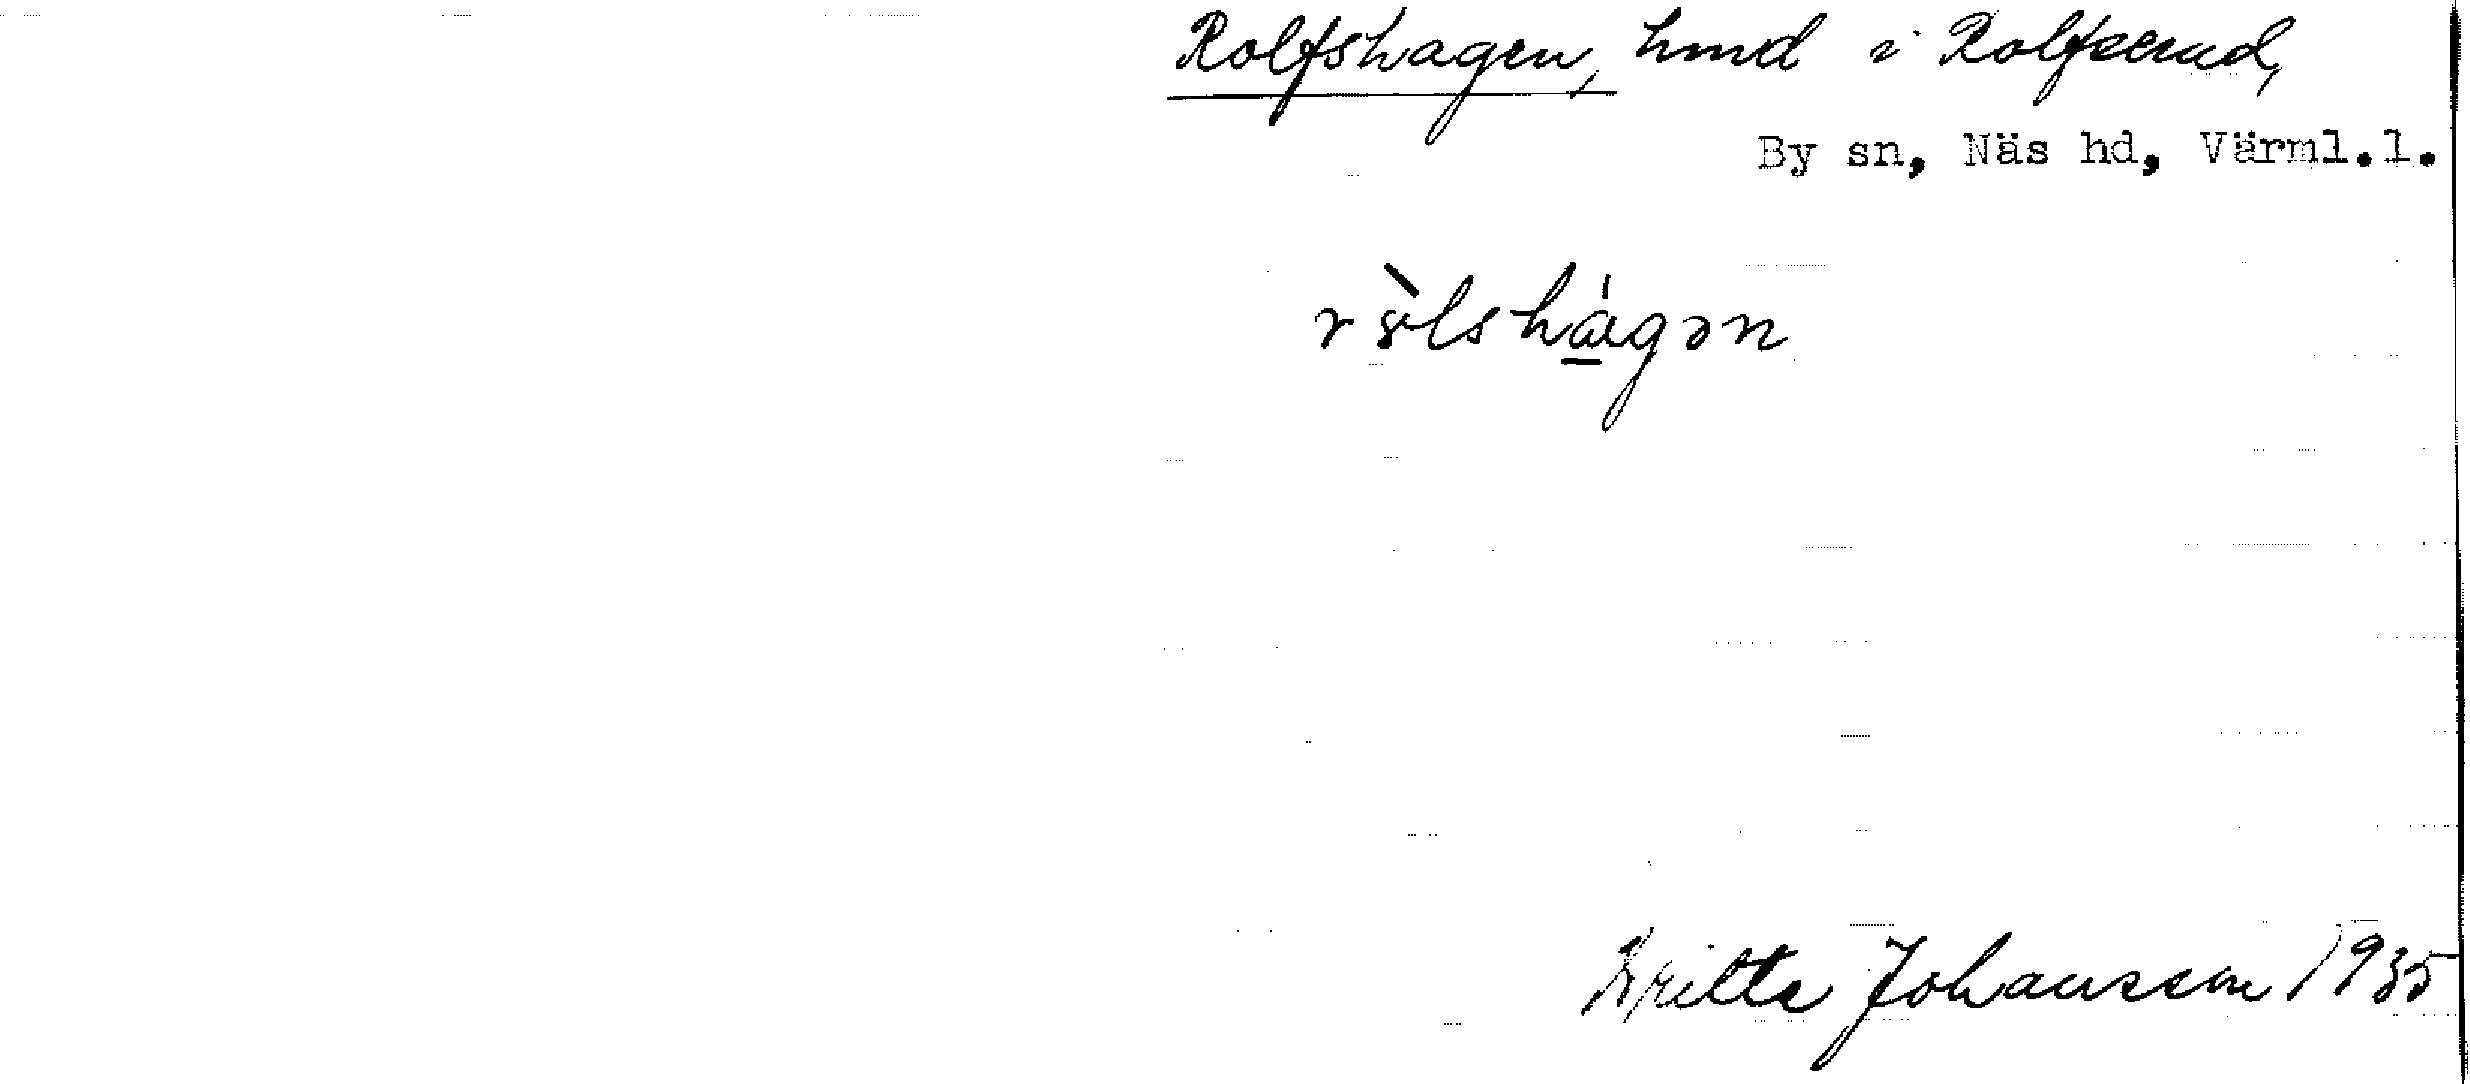 Rolfshagen, hmd i Rolfserud,
By sn, Näs hd, Värml.l.
Britta Johansson 1935